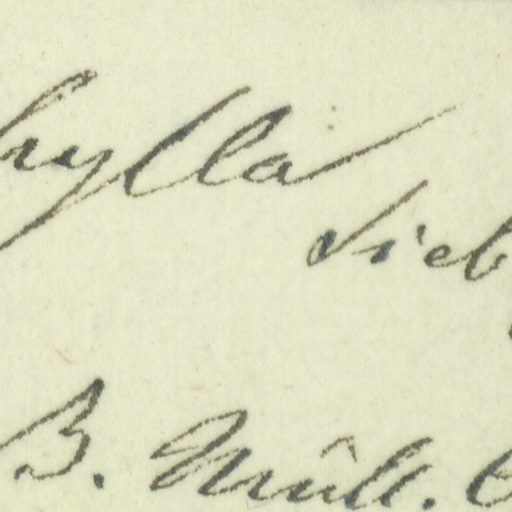 hylla
Sieb
B. Müll.